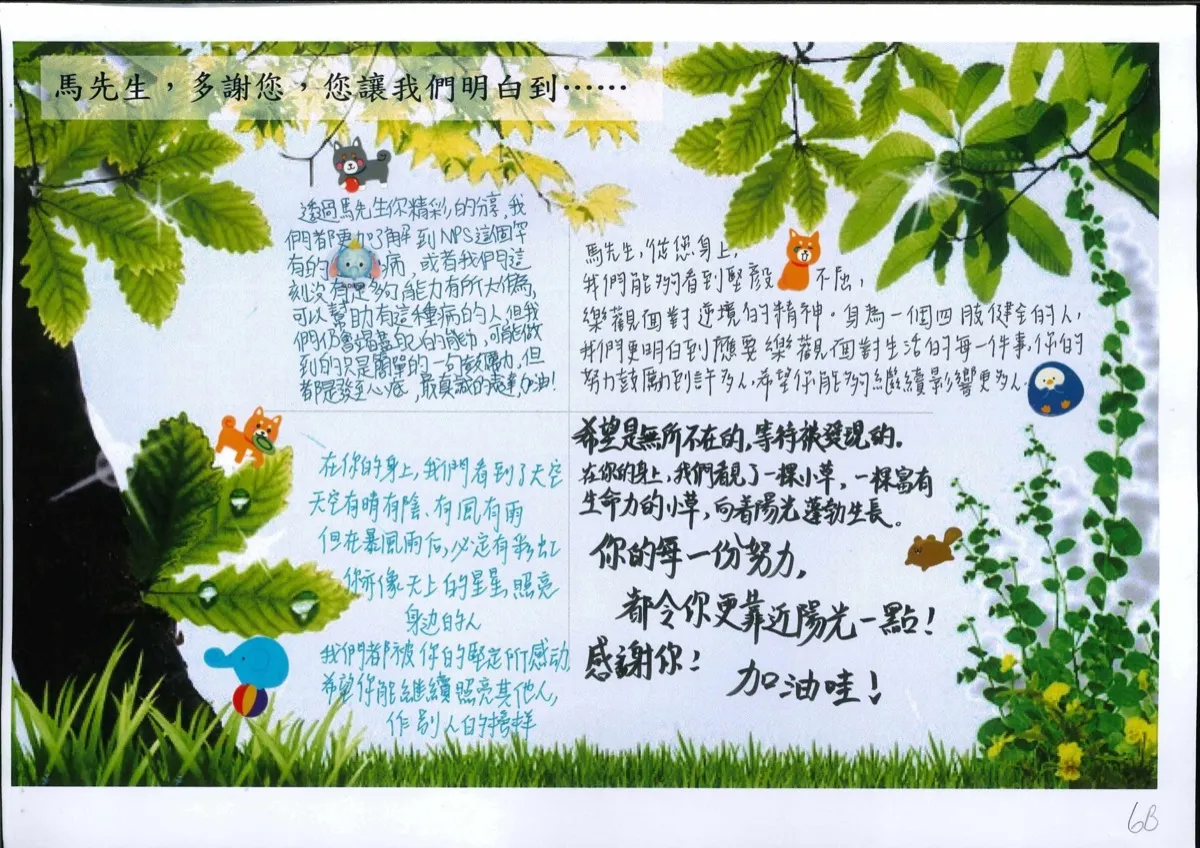 馬先生，多謝您，您讓我們明白到……
透過馬先生你精彩的分享，我
們都更加了解到NPS這個罕
有的病，或者我們這
刻沒有足夠能力有所大作為，
可以幫助有這種病的人，但我
們仍會竭盡配的能力，可能做
到的只是簡單的一句鼓勵，但
都是發至心底，最真誠的，加油！
馬先生，從您身上，
我們能夠看到堅毅不屈，
樂觀面對逆境的精神。身為一個四肢健全的人，
我們更明白到應要樂觀面對生活的每一件事，你的
努力鼓勵到許多人，希望你能夠繼續影響更多人。
在你的身上，我們看到了天空
天空有晴有陰、有風有雨
但在暴風雨后，必定有彩虹
你亦像天上的星星，照亮
身边的人
我們都被你的堅定所感动
希望你能继續照亮其他人，
作別人的榜样
希望是無所不在的，等待被發現的。
在你的身上，我們看見了一棵小草，一棵富有
生命力的小草，向着陽光蓬勃生長。
你的每一份努力，
都令你更靠近陽光一點！
感謝你！
加油哇！
6B